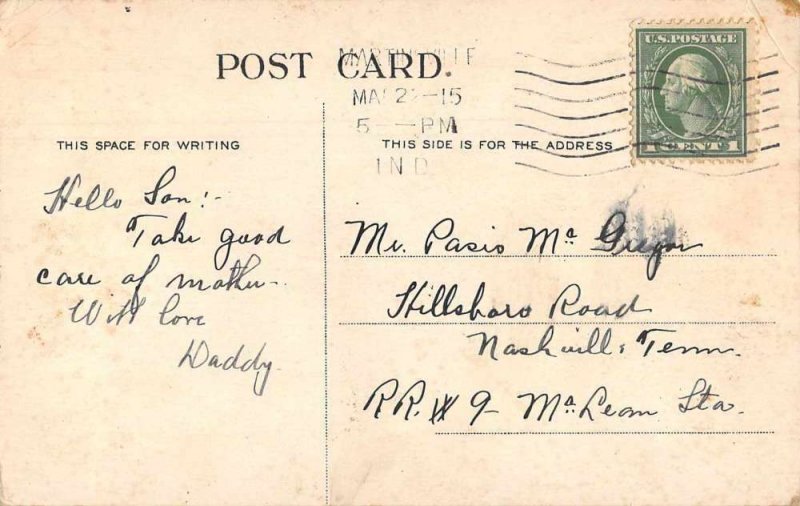 POST CARD.
MARTINSVILLE
MAR 2 -15
5 - PM
IND
U.S. POSTAGE
1 CENT 1
THIS SPACE FOR WRITING
THIS SIDE IS FOR THE ADDRESS
Hello Son:-
Take good
care of mother-
With love
Daddy.
Mr. Pasio Mc Gregor
Hillsboro Road
Nashville Tenn.
R.R. # 9 McLean Sta.